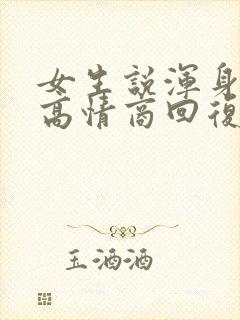 女生說渾身
高情商回復
玉酒酒